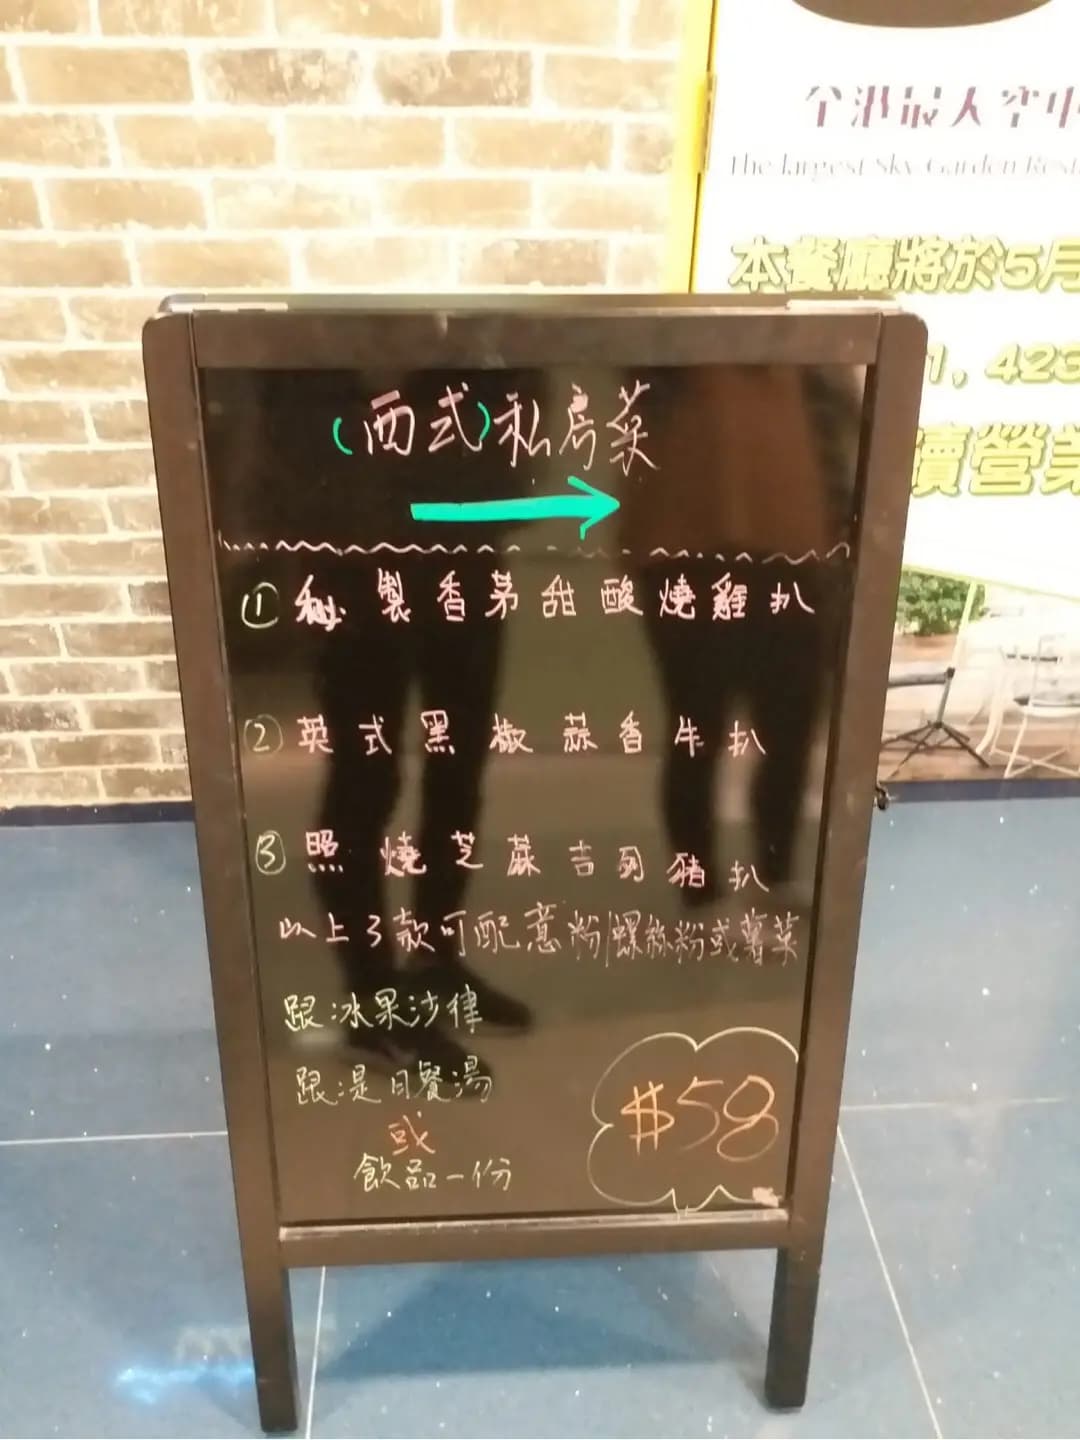 全港最大空中
The largest Sky Garden Rest
本餐廳將於5月
1, 423
續營業
(西式)私房菜
① 秘製香茅甜酸燒雞扒
② 英式黑椒蒜香牛扒
③ 照燒芝蔴吉列豬扒
以上3款可配意粉/螺絲粉或薯菜
跟:冰果沙律
跟:是日餐湯
或
飲品一份
$58